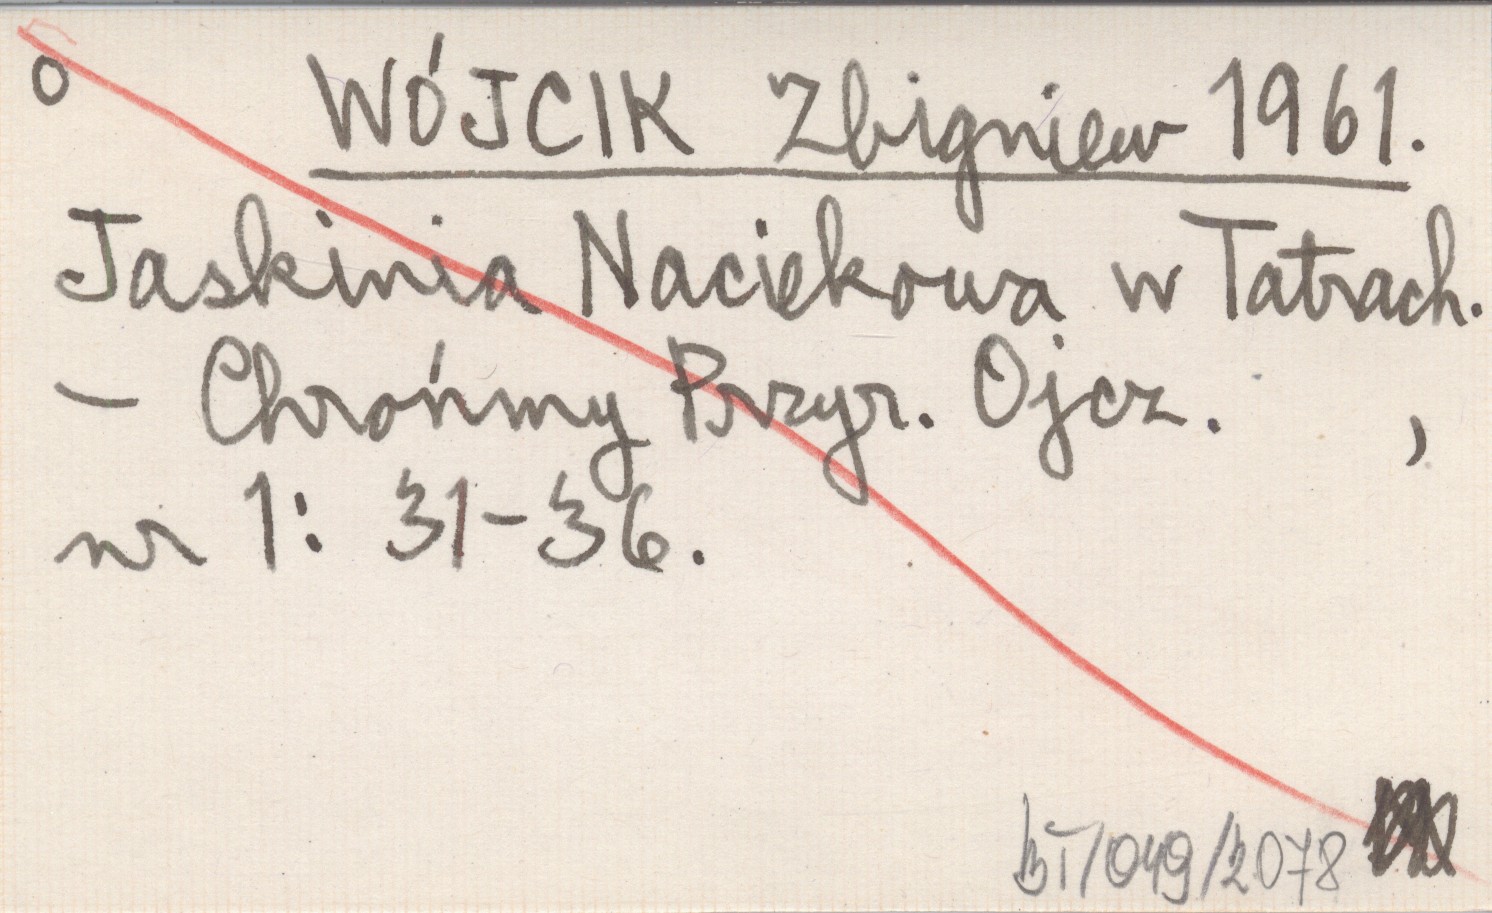 o WÓJCIK Zbigniew 1961.
Jaskinia Naciekowa w Tatrach.
– Chrońmy Przyr. Ojcz. ,
nr 1: 31-36.
BT/049/2078